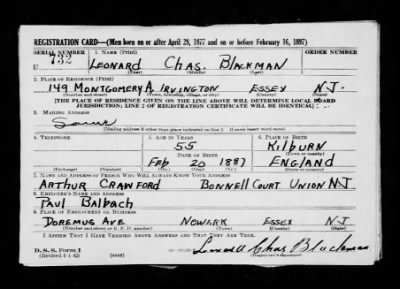 REGISTRATION CARD—(Men born on or after April 28, 1877 and on or before February 16, 1897)
SERIAL NUMBER 1. NAME (Print) ORDER NUMBER
U 732 LEONARD CHAS. BLACKMAN
(First) (Middle) (Last)
2. PLACE OF RESIDENCE (Print)
149 MONTGOMERY A. IRVINGTON ESSEX N.J.
(Number and street) (Town, township, village, or city) (County) (State)
[THE PLACE OF RESIDENCE GIVEN ON THE LINE ABOVE WILL DETERMINE LOCAL BOARD
JURISDICTION; LINE 2 OF REGISTRATION CERTIFICATE WILL BE IDENTICAL]
3. MAILING ADDRESS
Same
[Mailing address if other than place indicated on line 2. If same insert word same]
4. TELEPHONE 5. AGE IN YEARS 6. PLACE OF BIRTH
55 KILBURN
DATE OF BIRTH (Town or county)
FEB 20 1887 ENGLAND
(Exchange) (Number) (Mo.) (Day) (Yr.) (State or country)
7. NAME AND ADDRESS OF PERSON WHO WILL ALWAYS KNOW YOUR ADDRESS
ARTHUR CRAWFORD BONNELL COURT UNION N.J.
8. EMPLOYER'S NAME AND ADDRESS
PAUL BALBACH
9. PLACE OF EMPLOYMENT OR BUSINESS
DOREMUS AVE NEWARK ESSEX N.J.
(Number and street or R. F. D. number) (Town) (County) (State)
I AFFIRM THAT I HAVE VERIFIED ABOVE ANSWERS AND THAT THEY ARE TRUE.
D. S. S. Form 1
(Revised 4-1-42) (over) Leonard Chas Blackman
(Registrant's signature)